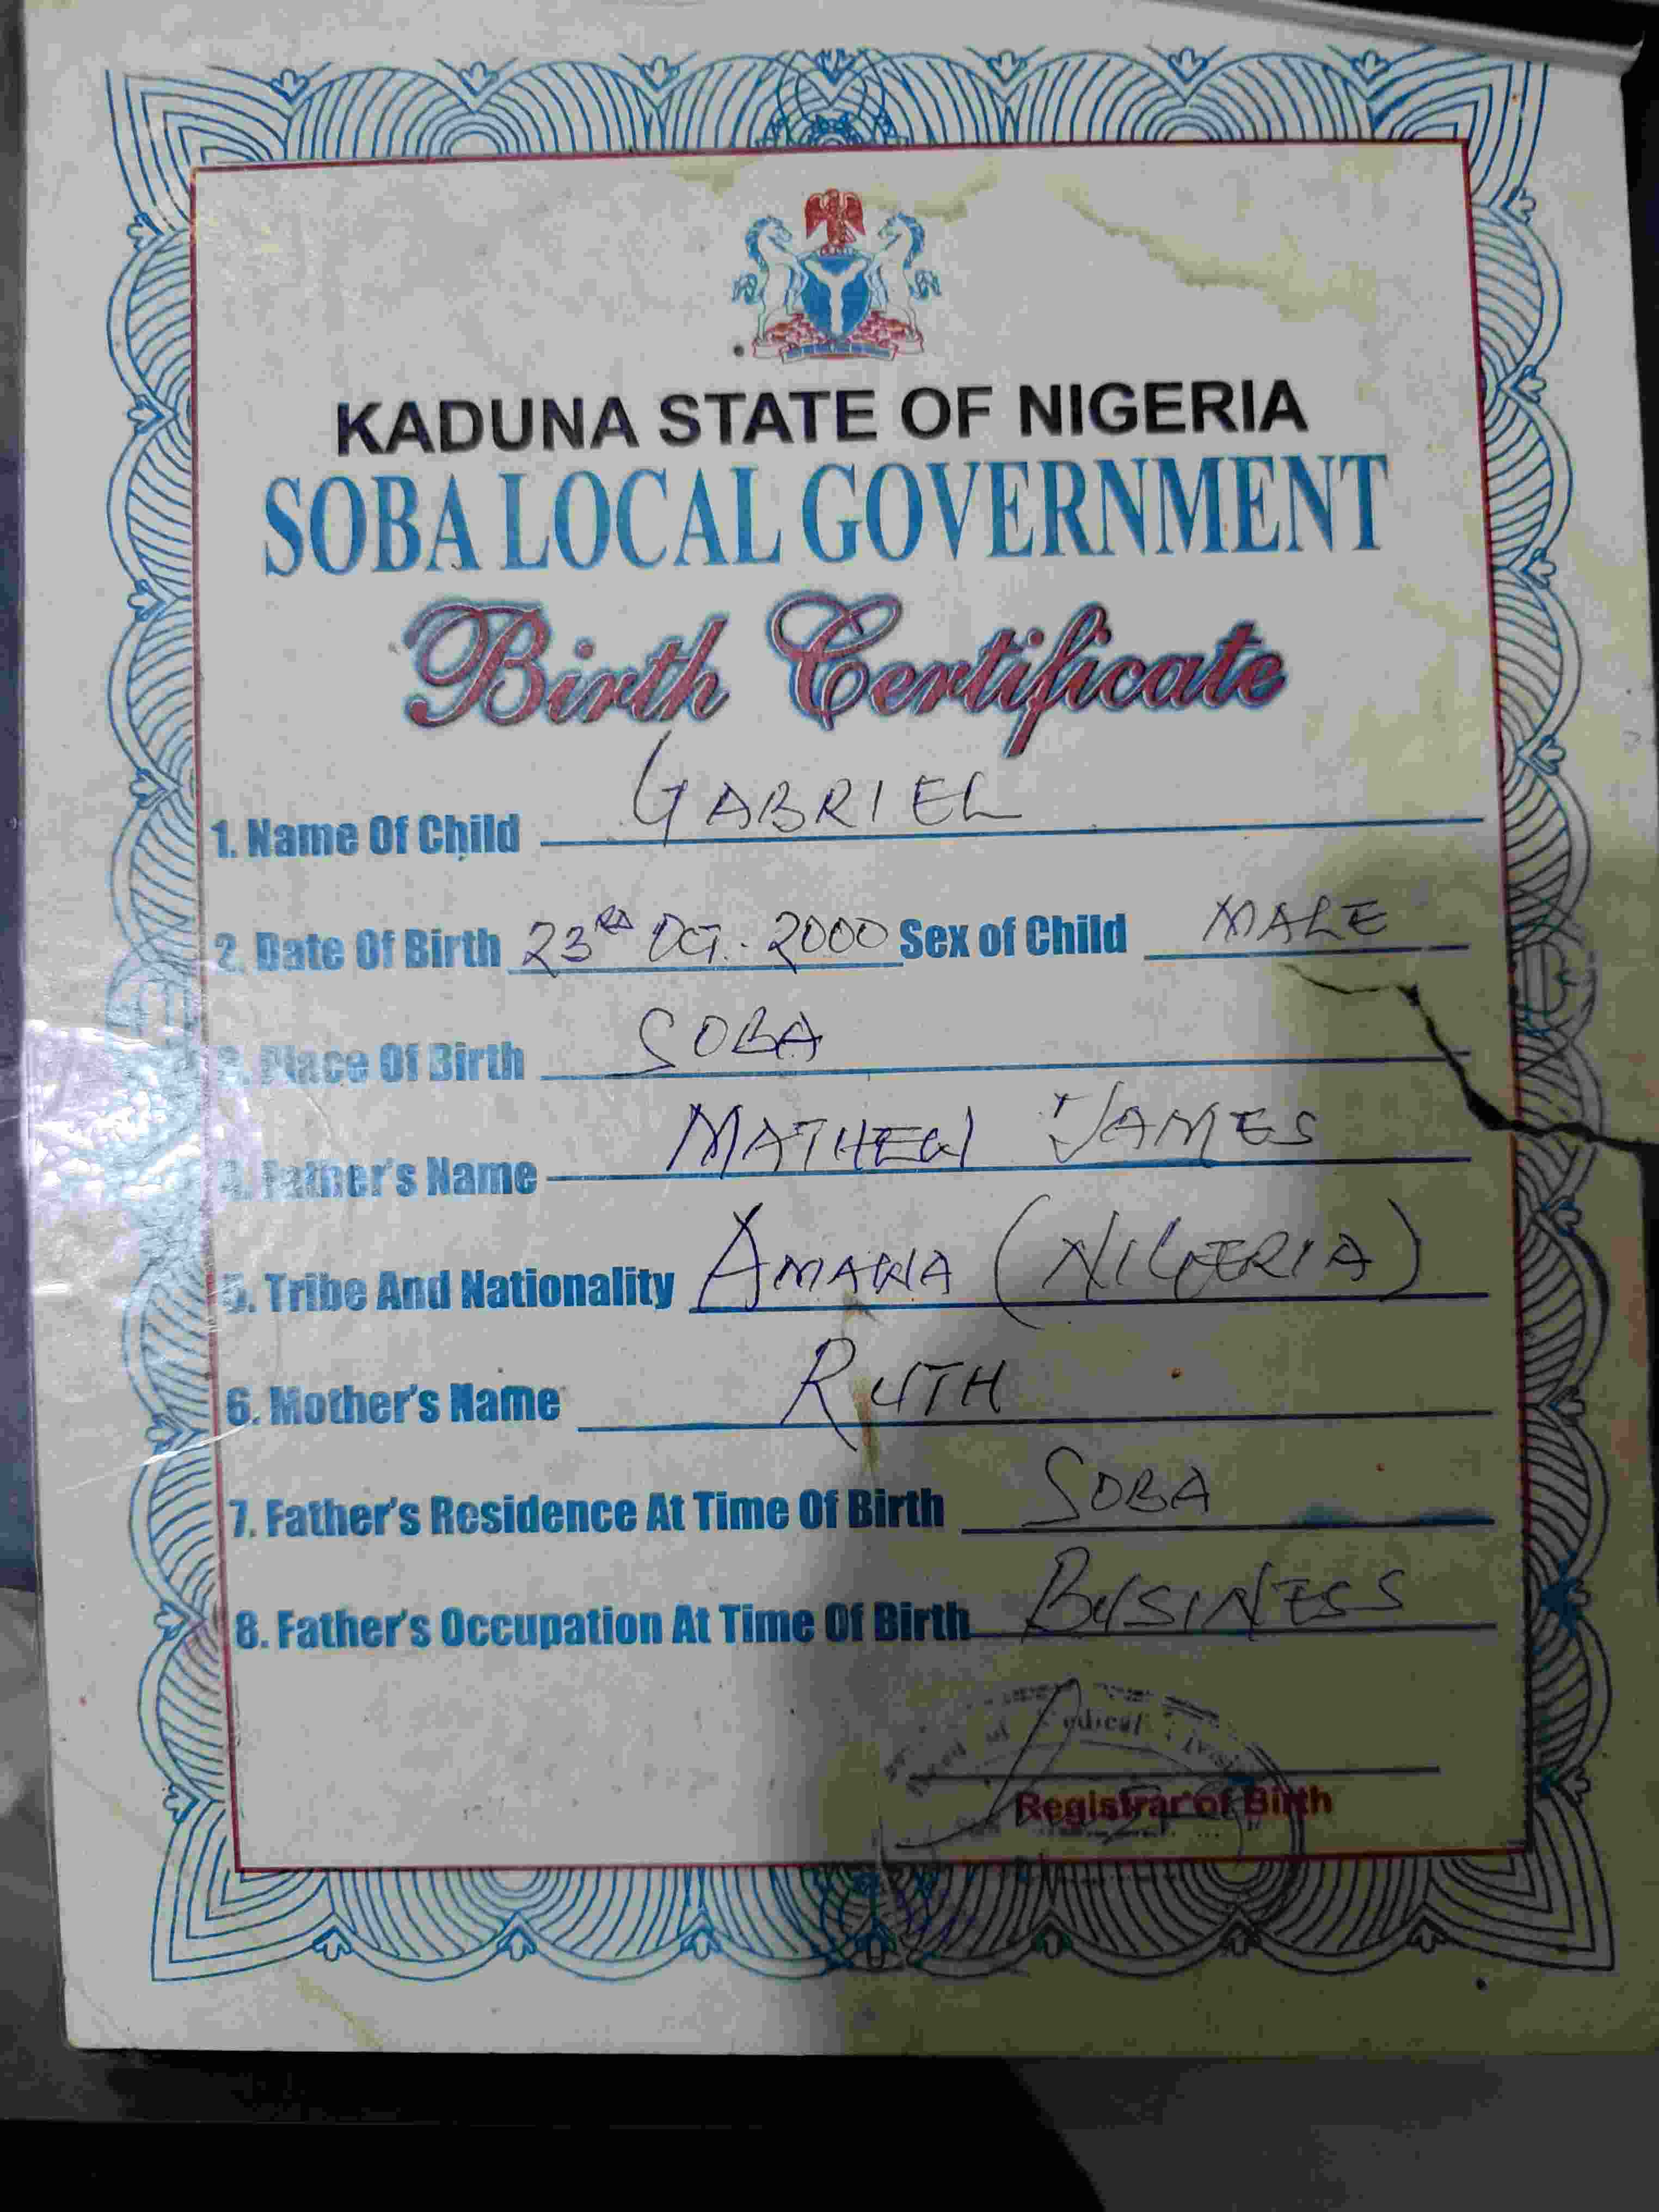 KADUNA STATE OF NIGERIA
SOBA LOCAL GOVERNMENT
Birth Certificate
1. Name Of Child GABRIEL
2. Date Of Birth 23RD OCT. 2000 Sex of Child MALE
3. Place Of Birth SOBA
4. Father's Name MATHEW JAMES
5. Tribe And Nationality AMAWA (NIGERIA)
6. Mother's Name RUTH
7. Father's Residence At Time Of Birth SOBA
8. Father's Occupation At Time Of Birth BUSINESS
Registrar of Birth